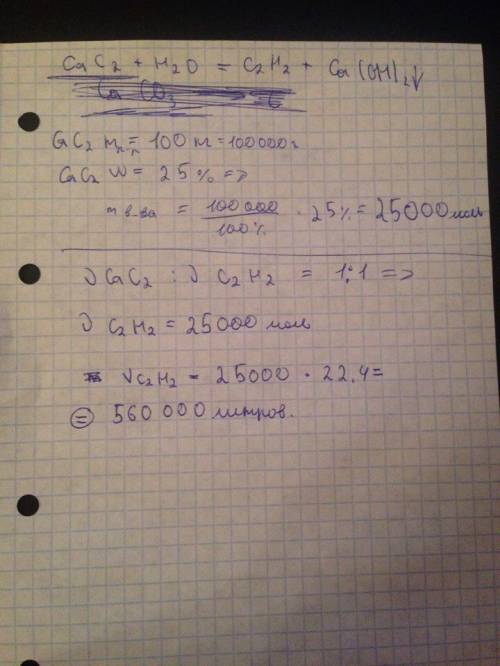 CaC2 + H2O = C2H2 + Ca(OH)2↓
CaC2 = 100 кг = 100000 г
CaC2 W = 25% =>
m в-ва = 100 000 / 100% · 25% = 25000 моль
ν CaC2 : ν C2H2 = 1:1 =>
ν C2H2 = 25000 моль
V C2H2 = 25000 · 22,4 =
= 560 000 литров.